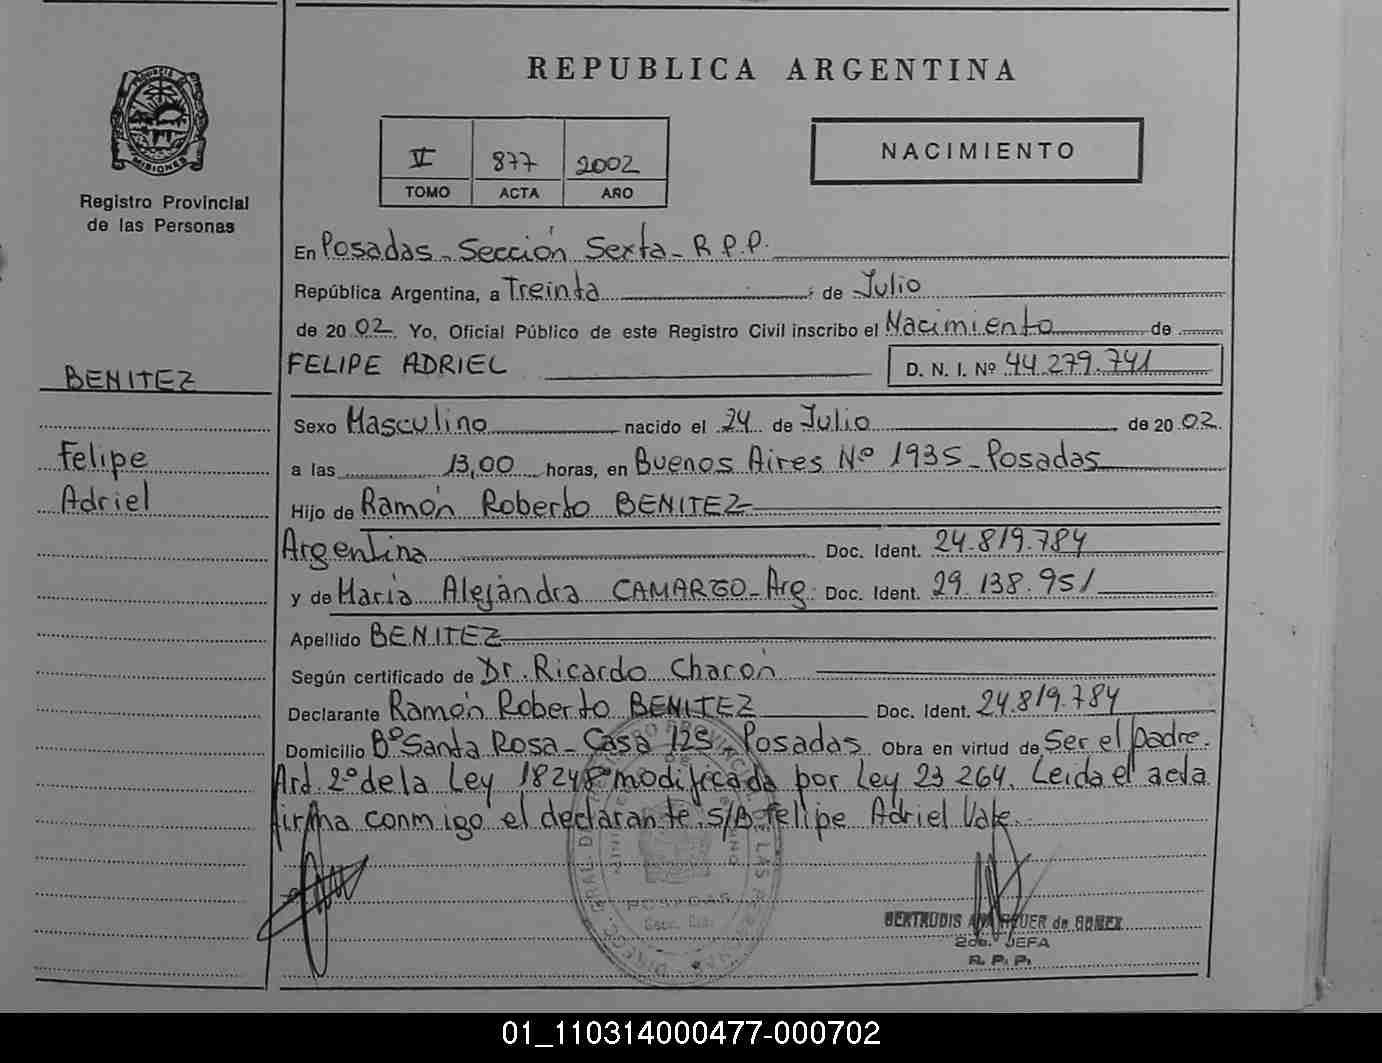 REPUBLICA ARGENTINA
PROVINCIA DE
MISIONES
Registro Provincial
de las Personas
V 877 2002
TOMO ACTA AÑO
NACIMIENTO
En Posadas - Sección Sexta - R.P.P.
República Argentina, a Treinta de Julio
de 20 02. Yo, Oficial Público de este Registro Civil inscribo el Nacimiento de
FELIPE ADRIEL D. N. I. Nº 44.279.741
BENITEZ
Felipe
Adriel
Sexo Masculino nacido el 24 de Julio de 20 02.
a las 13,00 horas, en Buenos Aires Nº 1935 - Posadas
Hijo de Ramón Roberto BENITEZ
Argentina Doc. Ident. 24.819.784
y de María Alejandra CAMARGO - Arg. Doc. Ident. 29.138.951
Apellido BENITEZ
Según certificado de Dr. Ricardo Charón
Declarante Ramón Roberto BENITEZ Doc. Ident. 24.819.784
Domicilio Bº Santa Rosa - Casa 125 - Posadas Obra en virtud de Ser el padre.
Art. 2º de la Ley 18248 modificada por Ley 23264. Leida el acta
firma conmigo el declarante. S/B Felipe Adriel Vale.
POSADAS
GERTRUDIS de GOMEZ
2da. JEFA
R. P. P.
01_110314000477-000702